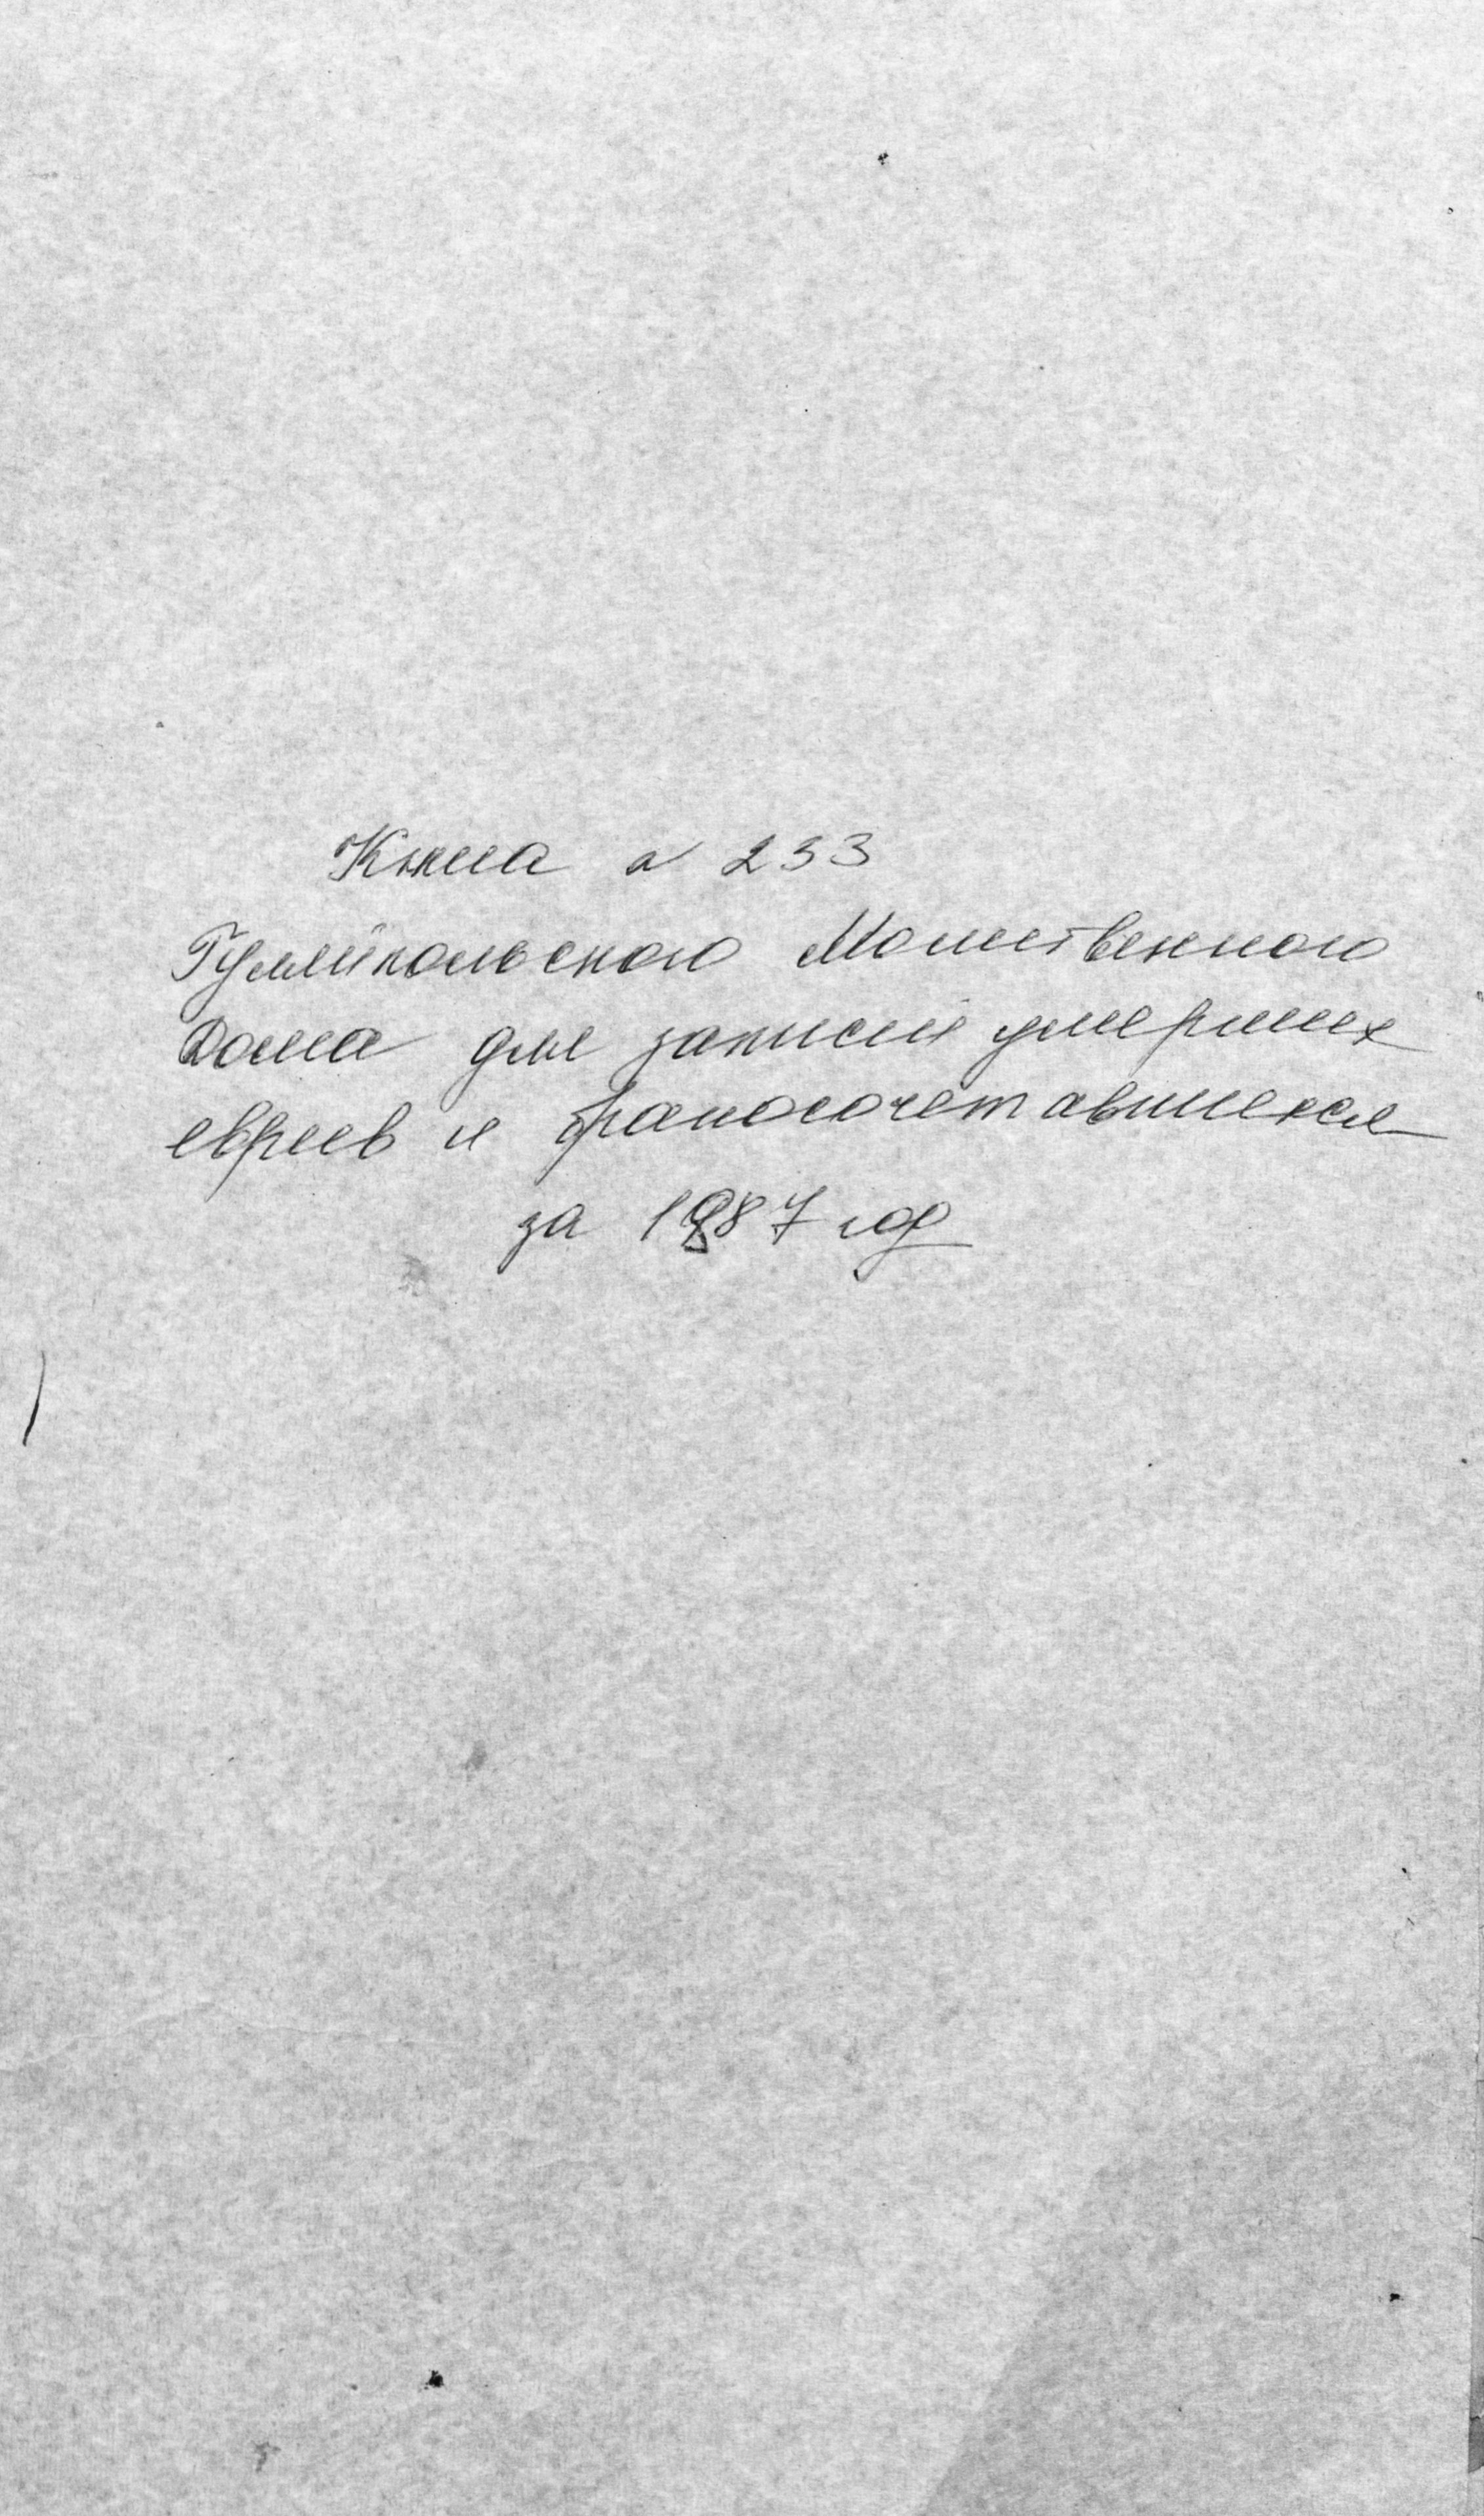 Книга № 233
Гуляйпольского Молитвенного
Дома для записи умерших
евреев и бракосочетавшихся
за 1887 год